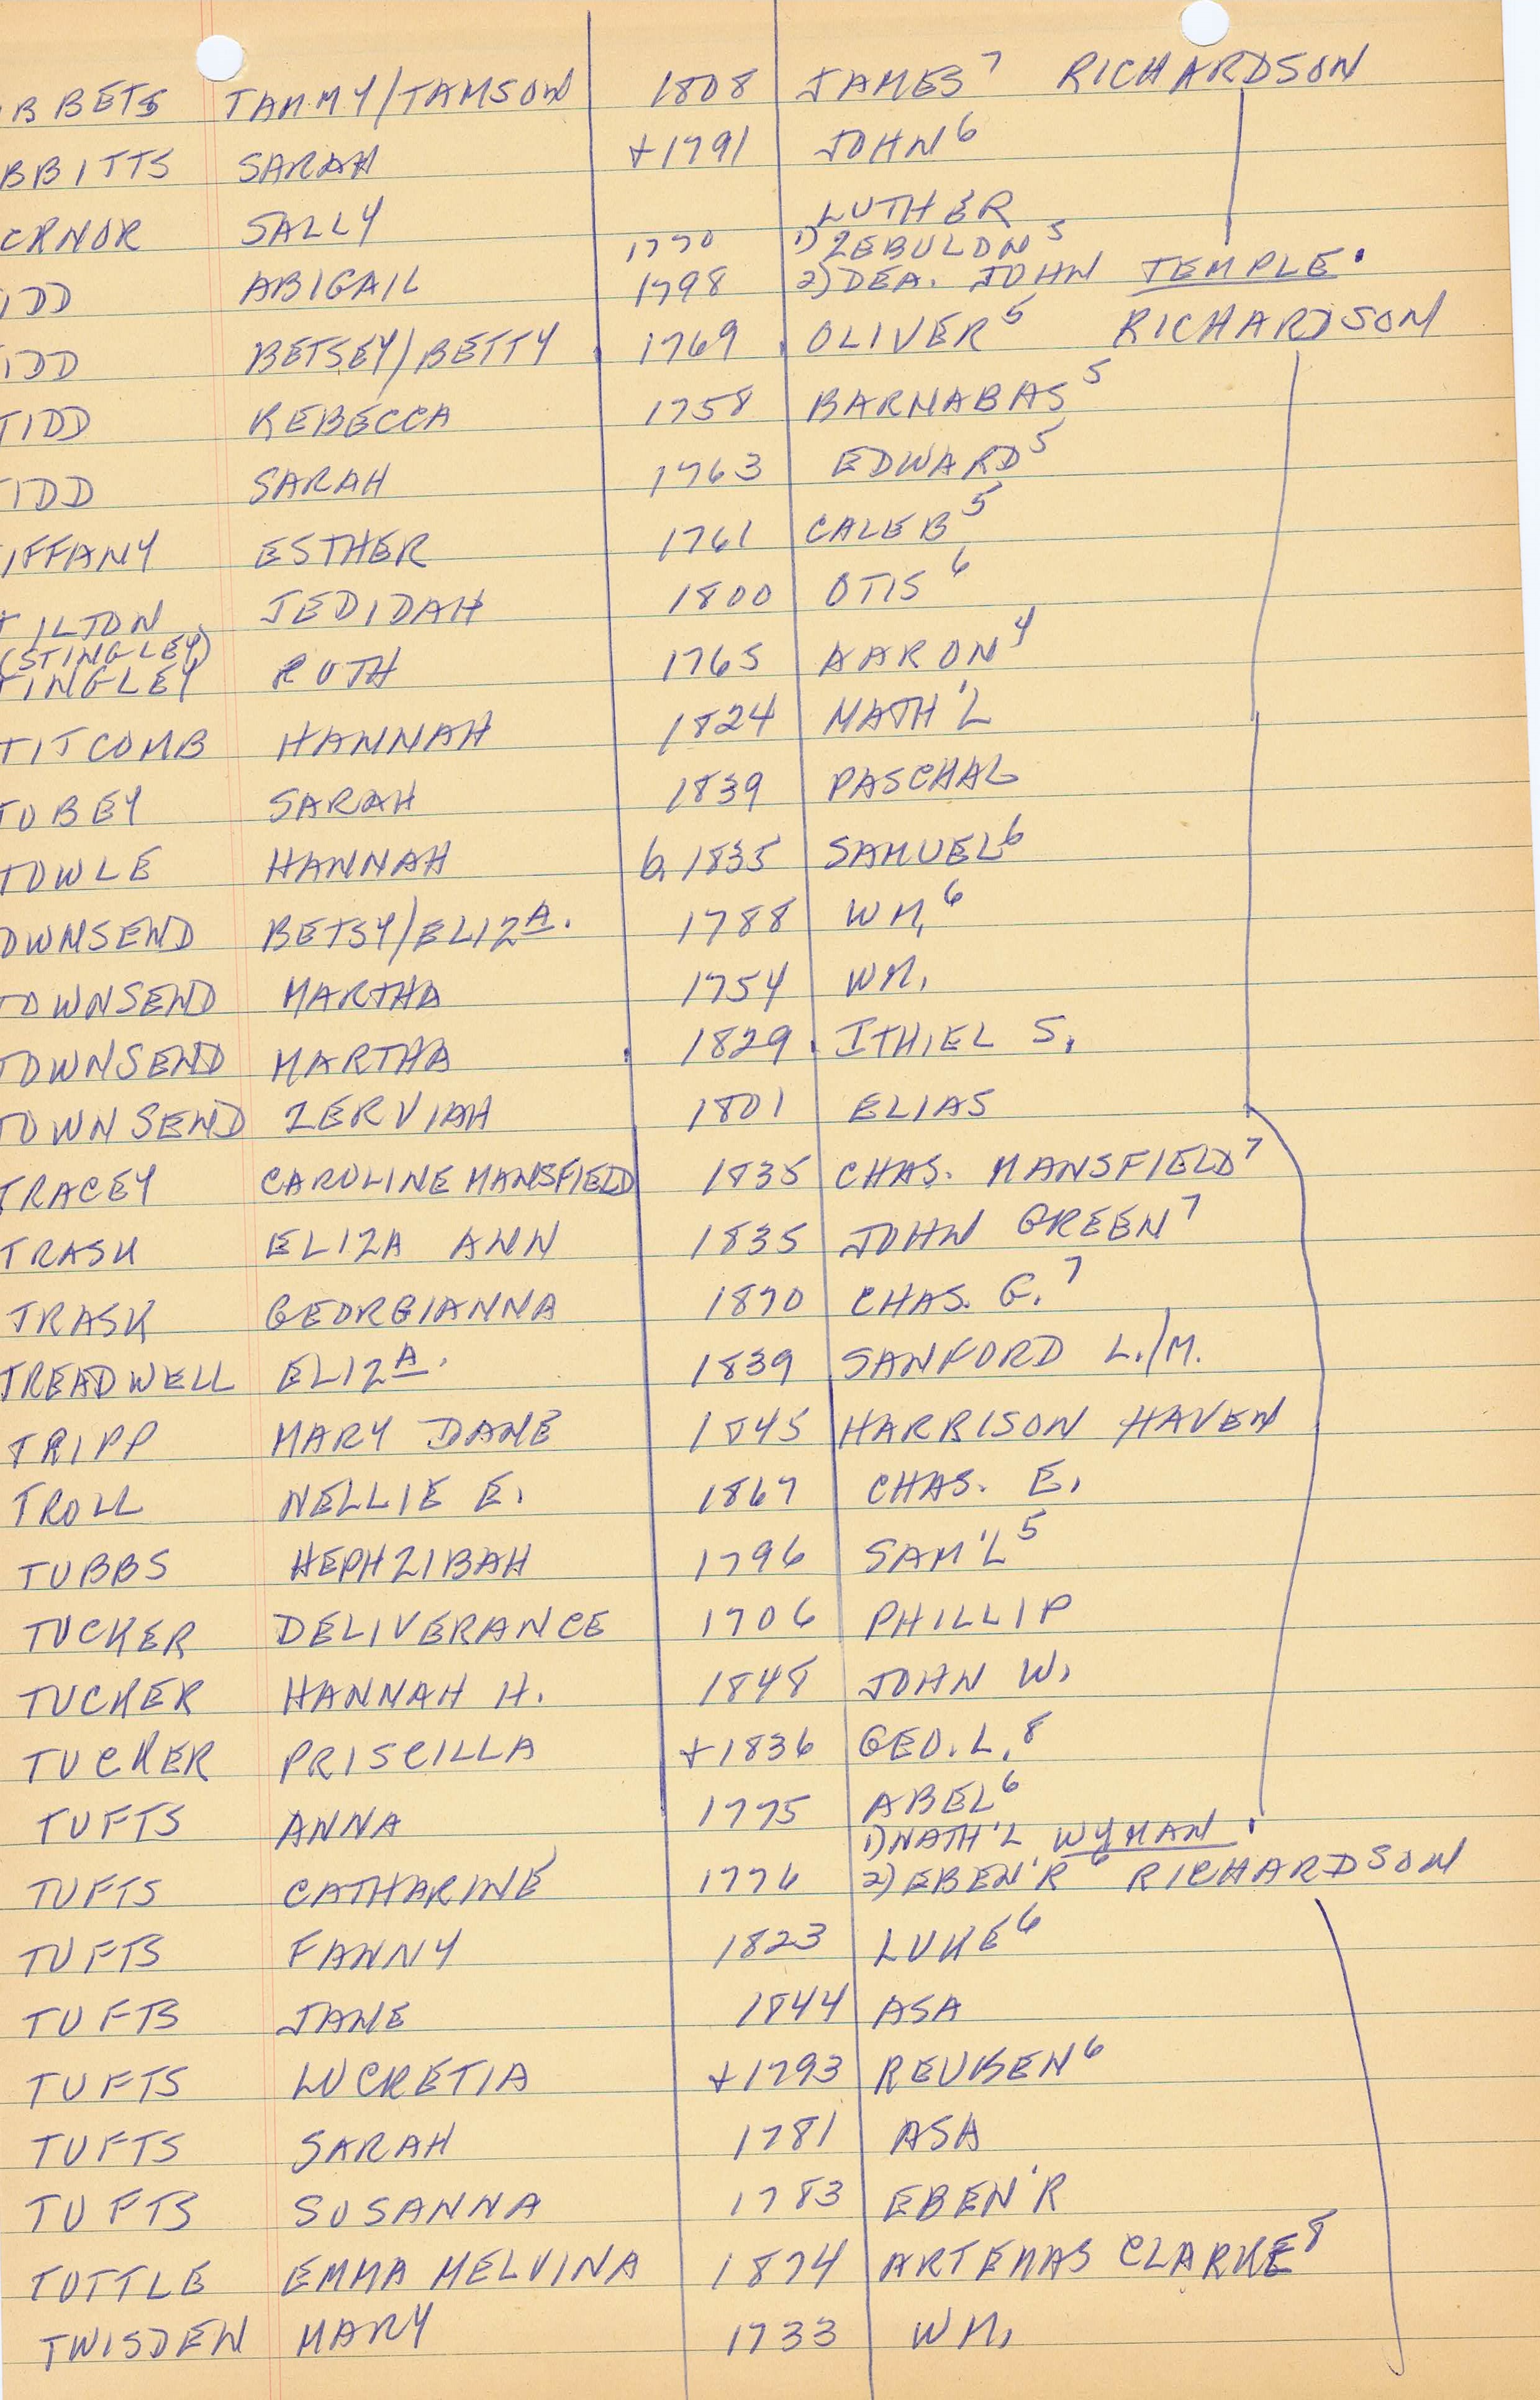 BBETS TAMMY/TAMSON 1808 JAMES⁷ RICHARDSON
BBITTS SARAH +1791 JOHN⁶
CRNOR SALLY LUTHER
1770 1) ZEBULON⁵
IDD ABIGAIL 1798 2) DEA. JOHN TEMPLE.
IDD BETSEY/BETTY 1769 OLIVER⁵ RICHARDSON
TIDD REBECCA 1758 BARNABAS⁵
TIDD SARAH 1763 EDWARD⁵
IFFANY ESTHER 1761 CALEB⁵
TILTON JEDIDAH 1800 OTIS⁶
(STINGLEY)
TINGLEY RUTH 1765 AARON⁴
TITCOMB HANNAH 1824 NATH'L
TOBEY SARAH 1839 PASCHAL
TOWLE HANNAH b. 1835 SAMUEL⁶
OWNSEND BETSY/ELIZA. 1788 WM.⁶
TOWNSEND MARTHA 1754 WM.
TOWNSEND MARTHA 1829 ITHIEL S.
TOWNSEND ZERVIAH 1801 ELIAS
TRACEY CAROLINE MANSFIELD 1835 CHAS. MANSFIELD⁷
TRASK ELIZA ANN 1835 JOHN GREEN⁷
TRASK GEORGIANNA 1870 CHAS. G.⁷
TREADWELL ELIZA. 1839 SANFORD L./M.
TRIPP MARY DANE 1845 HARRISON HAVEN
TROLL NELLIE E. 1867 CHAS. E.
TUBBS HEPHZIBAH 1796 SAM'L⁵
TUCKER DELIVERANCE 1706 PHILLIP
TUCKER HANNAH H. 1848 JOHN W.
TUCKER PRISCILLA +1836 GEO. L.⁸
TUFTS ANNA 1775 ABEL⁶
1) NATH'L WYMAN.
TUFTS CATHARINE 1776 2) EBEN'R⁶ RICHARDSON
TUFTS FANNY 1823 LUKE⁶
TUFTS JANE 1844 ASA
TUFTS LUCRETIA +1793 REUBEN⁶
TUFTS SARAH 1781 ASA
TUFTS SUSANNA 1783 EBEN'R
TUTTLE EMMA MELVINA 1874 ARTEMAS CLARKE⁸
TWISDEN MARY 1733 WM.